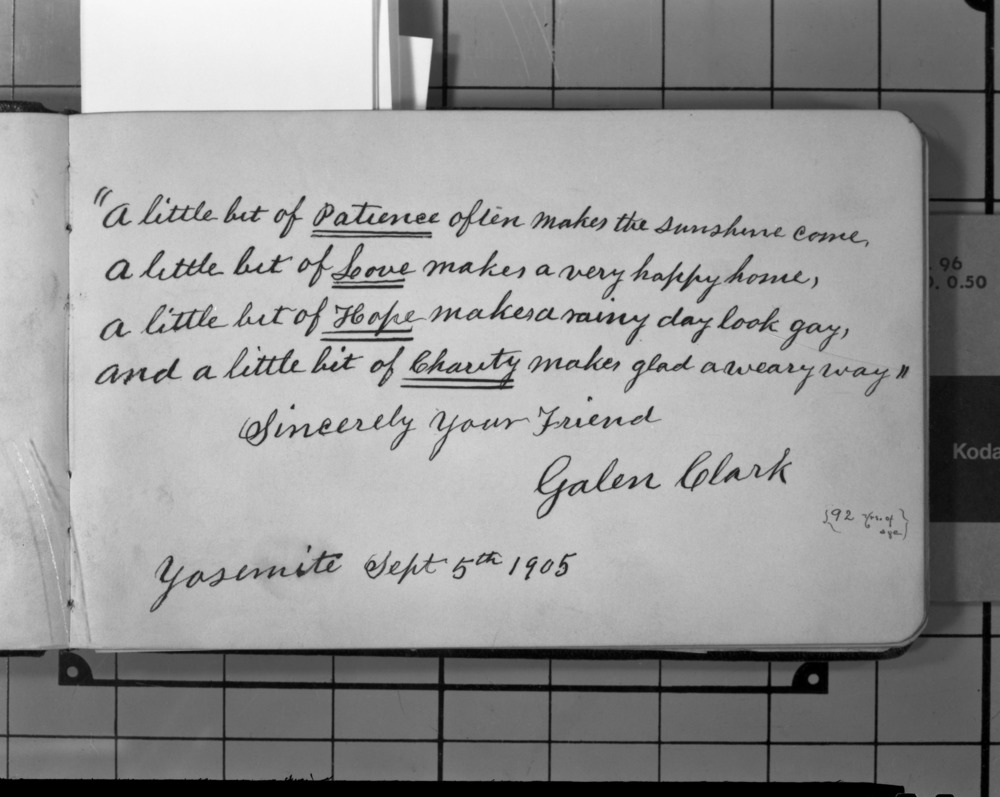 "A little bit of Patience often makes the sunshine come,
A little bit of Love makes a very happy home,
A little bit of Hope makes a rainy day look gay,
And a little bit of Charity makes glad a weary way"
Sincerely Your Friend
Galen Clark
{92 yrs. of age}
Yosemite Sept 5th 1905
96
0.50
Koda